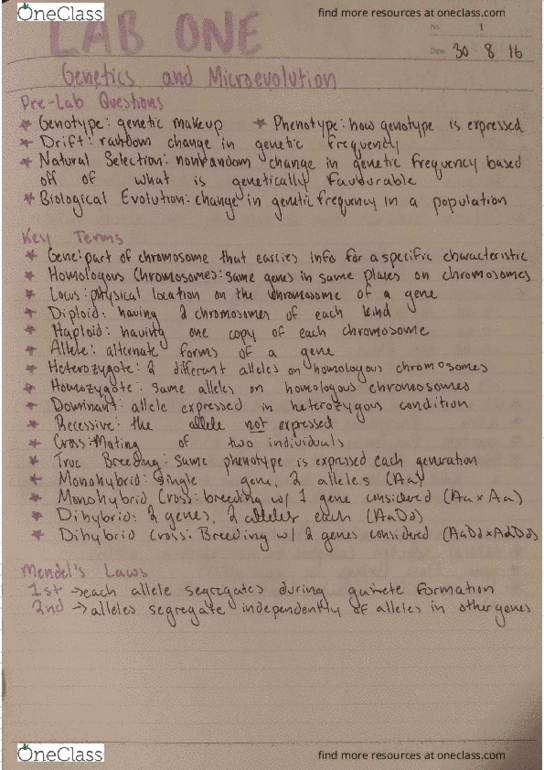 OneClass
find more resources at oneclass.com
LAB ONE
No. 1
Date 30 8 16
Genetics and Microevolution
Pre-Lab Questions
* Genotype: genetic makeup * Phenotype: how genotype is expressed
* Drift: random change in genetic frequency
* Natural Selection: nonrandom change in genetic frequency based
off of what is genetically favourable
* Biological Evolution: change in genetic frequency in a population
Key Terms
* Gene: part of chromosome that carries info for a specific characteristic
* Homologous Chromosomes: same genes in same places on chromosomes
* Locus: physical location on the chromosome of a gene
* Diploid: having 2 chromosomes of each kind
* Haploid: having one copy of each chromosome
* Allele: alternate forms of a gene
* Heterozygote: 2 different alleles on homologous chromosomes
* Homozygote: same alleles on homologous chromosomes
* Dominant: allele expressed in heterozygous condition
* Recessive: the allele not expressed
* Cross: Mating of two individuals
* True Breeding: same phenotype is expressed each generation
* Monohybrid: Single gene, 2 alleles (Aa)
* Monohybrid Cross: breeding w/ 1 gene considered (Aa x Aa)
* Dihybrid: 2 genes, 2 alleles each (AaDd)
* Dihybrid Cross: Breeding w/ 2 genes considered (AaDd x AaDd)
Mendel's Laws
1st → each allele segregates during gamete formation
2nd → alleles segregate independently of alleles in other genes
OneClass
find more resources at oneclass.com